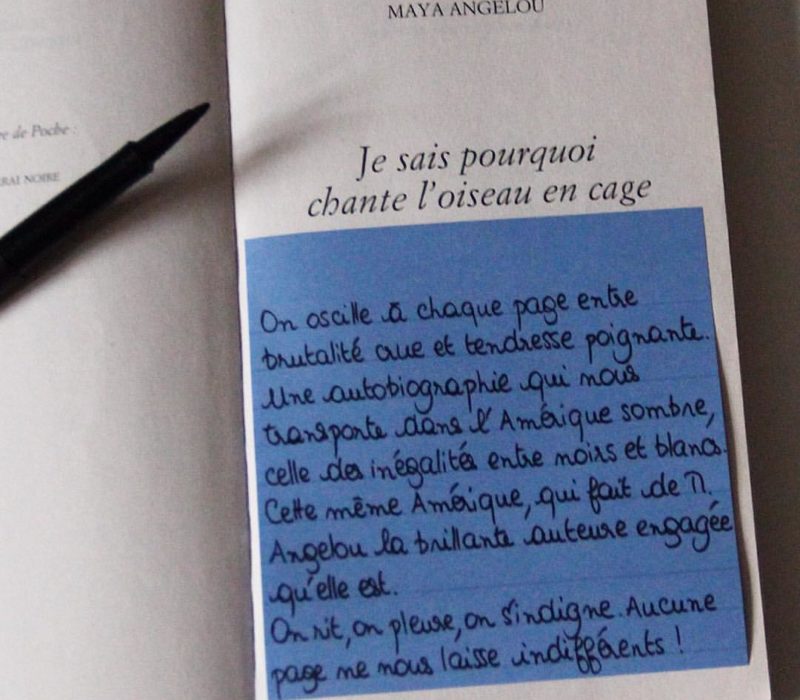 MAYA ANGELOU
re de Poche :
RAI NOIRE
Je sais pourquoi
chante l'oiseau en cage
On oscille à chaque page entre
brutalité crue et tendresse poignante.
Une autobiographie qui nous
transporte dans l'Amérique sombre,
celle des inégalités entre noirs et blancs.
Cette même Amérique, qui fait de M.
Angelou la brillante auteure engagée
qu'elle est.
On rit, on pleure, on s'indigne. Aucune
page ne nous laisse indifférents !